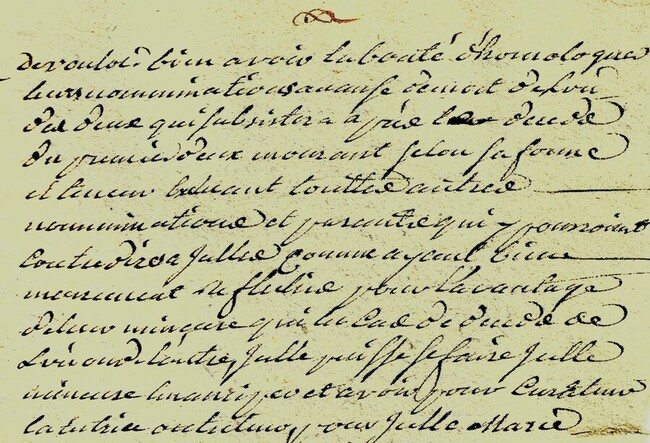 de vouloir bien avoir la bonté d'homologuer
leurs nominations a cause de mort de l'un
des deux qui subsistera après le deceds
du premier deux mourant selon sa forme
et teneur excluant touttes autres
nominations et parente qui y pourroint
contredire a Jullie comme ayant bien
meurement reflechie pour l'avantage
de leur mineure qu'en cas de deceds de
l'un ou de l'autre, Julle puisse se faire Julle
mineure emanciper et avoir pour curateur
la tutrice ou tuteur, pour Julle Marie